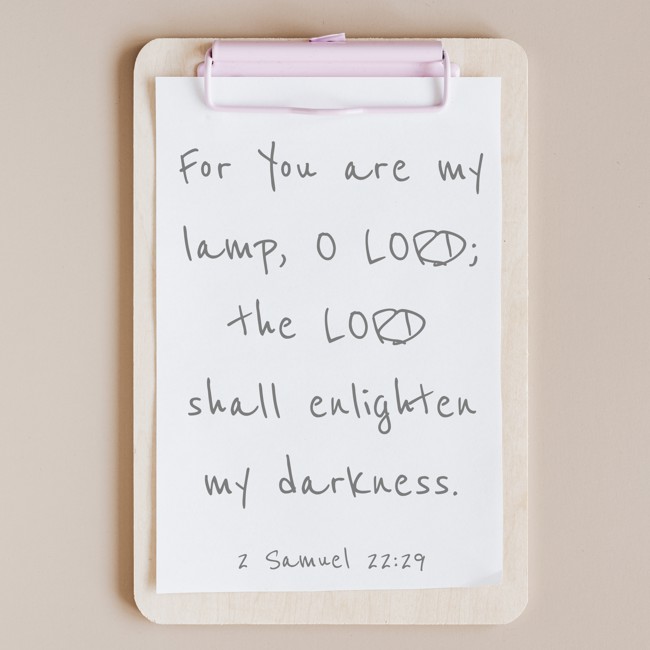 For You are my
lamp, O LORD;
the LORD
shall enlighten
my darkness.
2 Samuel 22:29